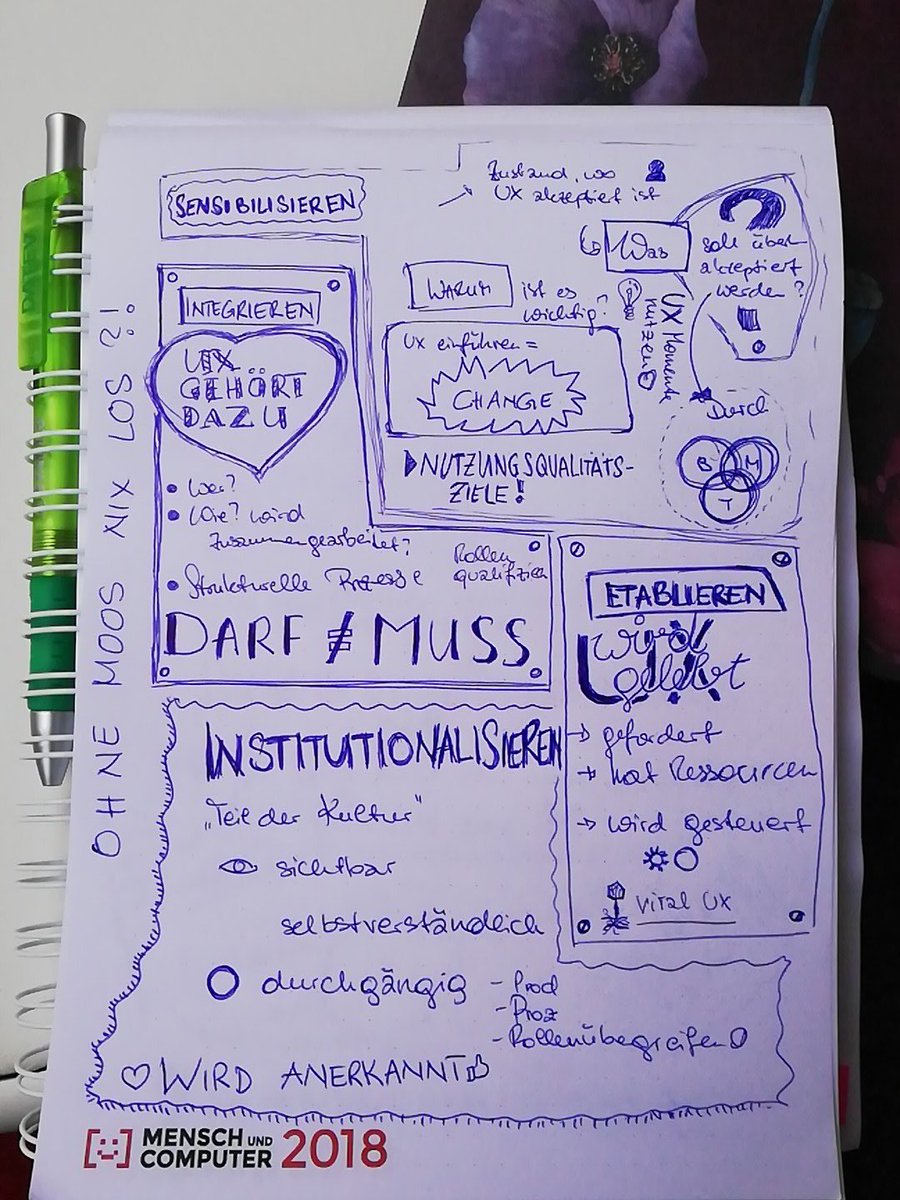 SENSIBILISIEREN
Zustand, wo
UX akzeptiert ist
Was
soll über-
akzeptiert
werden?
WARUM
ist es
wichtig?
UX Momente
nutzen
UX einführen =
CHANGE
NUTZUNGSQUALITÄTS-
ZIELE!
Durch
B M
T
INTEGRIEREN
UX
GEHÖRT
DAZU
• Wer?
• Wie? wird
zusammengearbeitet?
• Strukturelle Prozesse
Rollen
qualifizien
DARF ≠ MUSS
ETABLIEREN
wird
gelebt
→ gefördert
→ hat Ressourcen
→ wird gesteuert
viral UX
INSTITUTIONALISIEREN
„Teil der Kultur"
sichtbar
selbstverständlich
durchgängig
- Prod
- Proz
- Rollenübergreifend
WIRD ANERKANNT
OHNE MOOS NIX LOS ?!
MENSCH UND
COMPUTER 2018